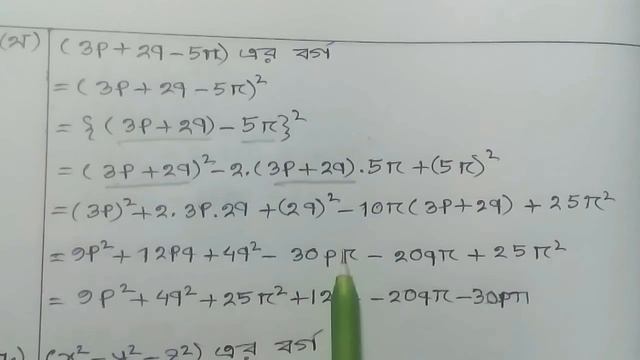 (ম) (3p+2q-5π) এর বর্গ
= (3p+2q-5π)²
= {(3p+2q)-5π}²
= (3p+2q)²-2.(3p+2q).5π+(5π)²
= (3p)²+2.3p.2q+(2q)²-10π(3p+2q)+25π²
= 9p²+12pq+4q²-30pπ-20qπ+25π²
= 9p²+4q²+25π²+12 -20qπ-30pπ
(x²-y²-z²) এর বর্গ